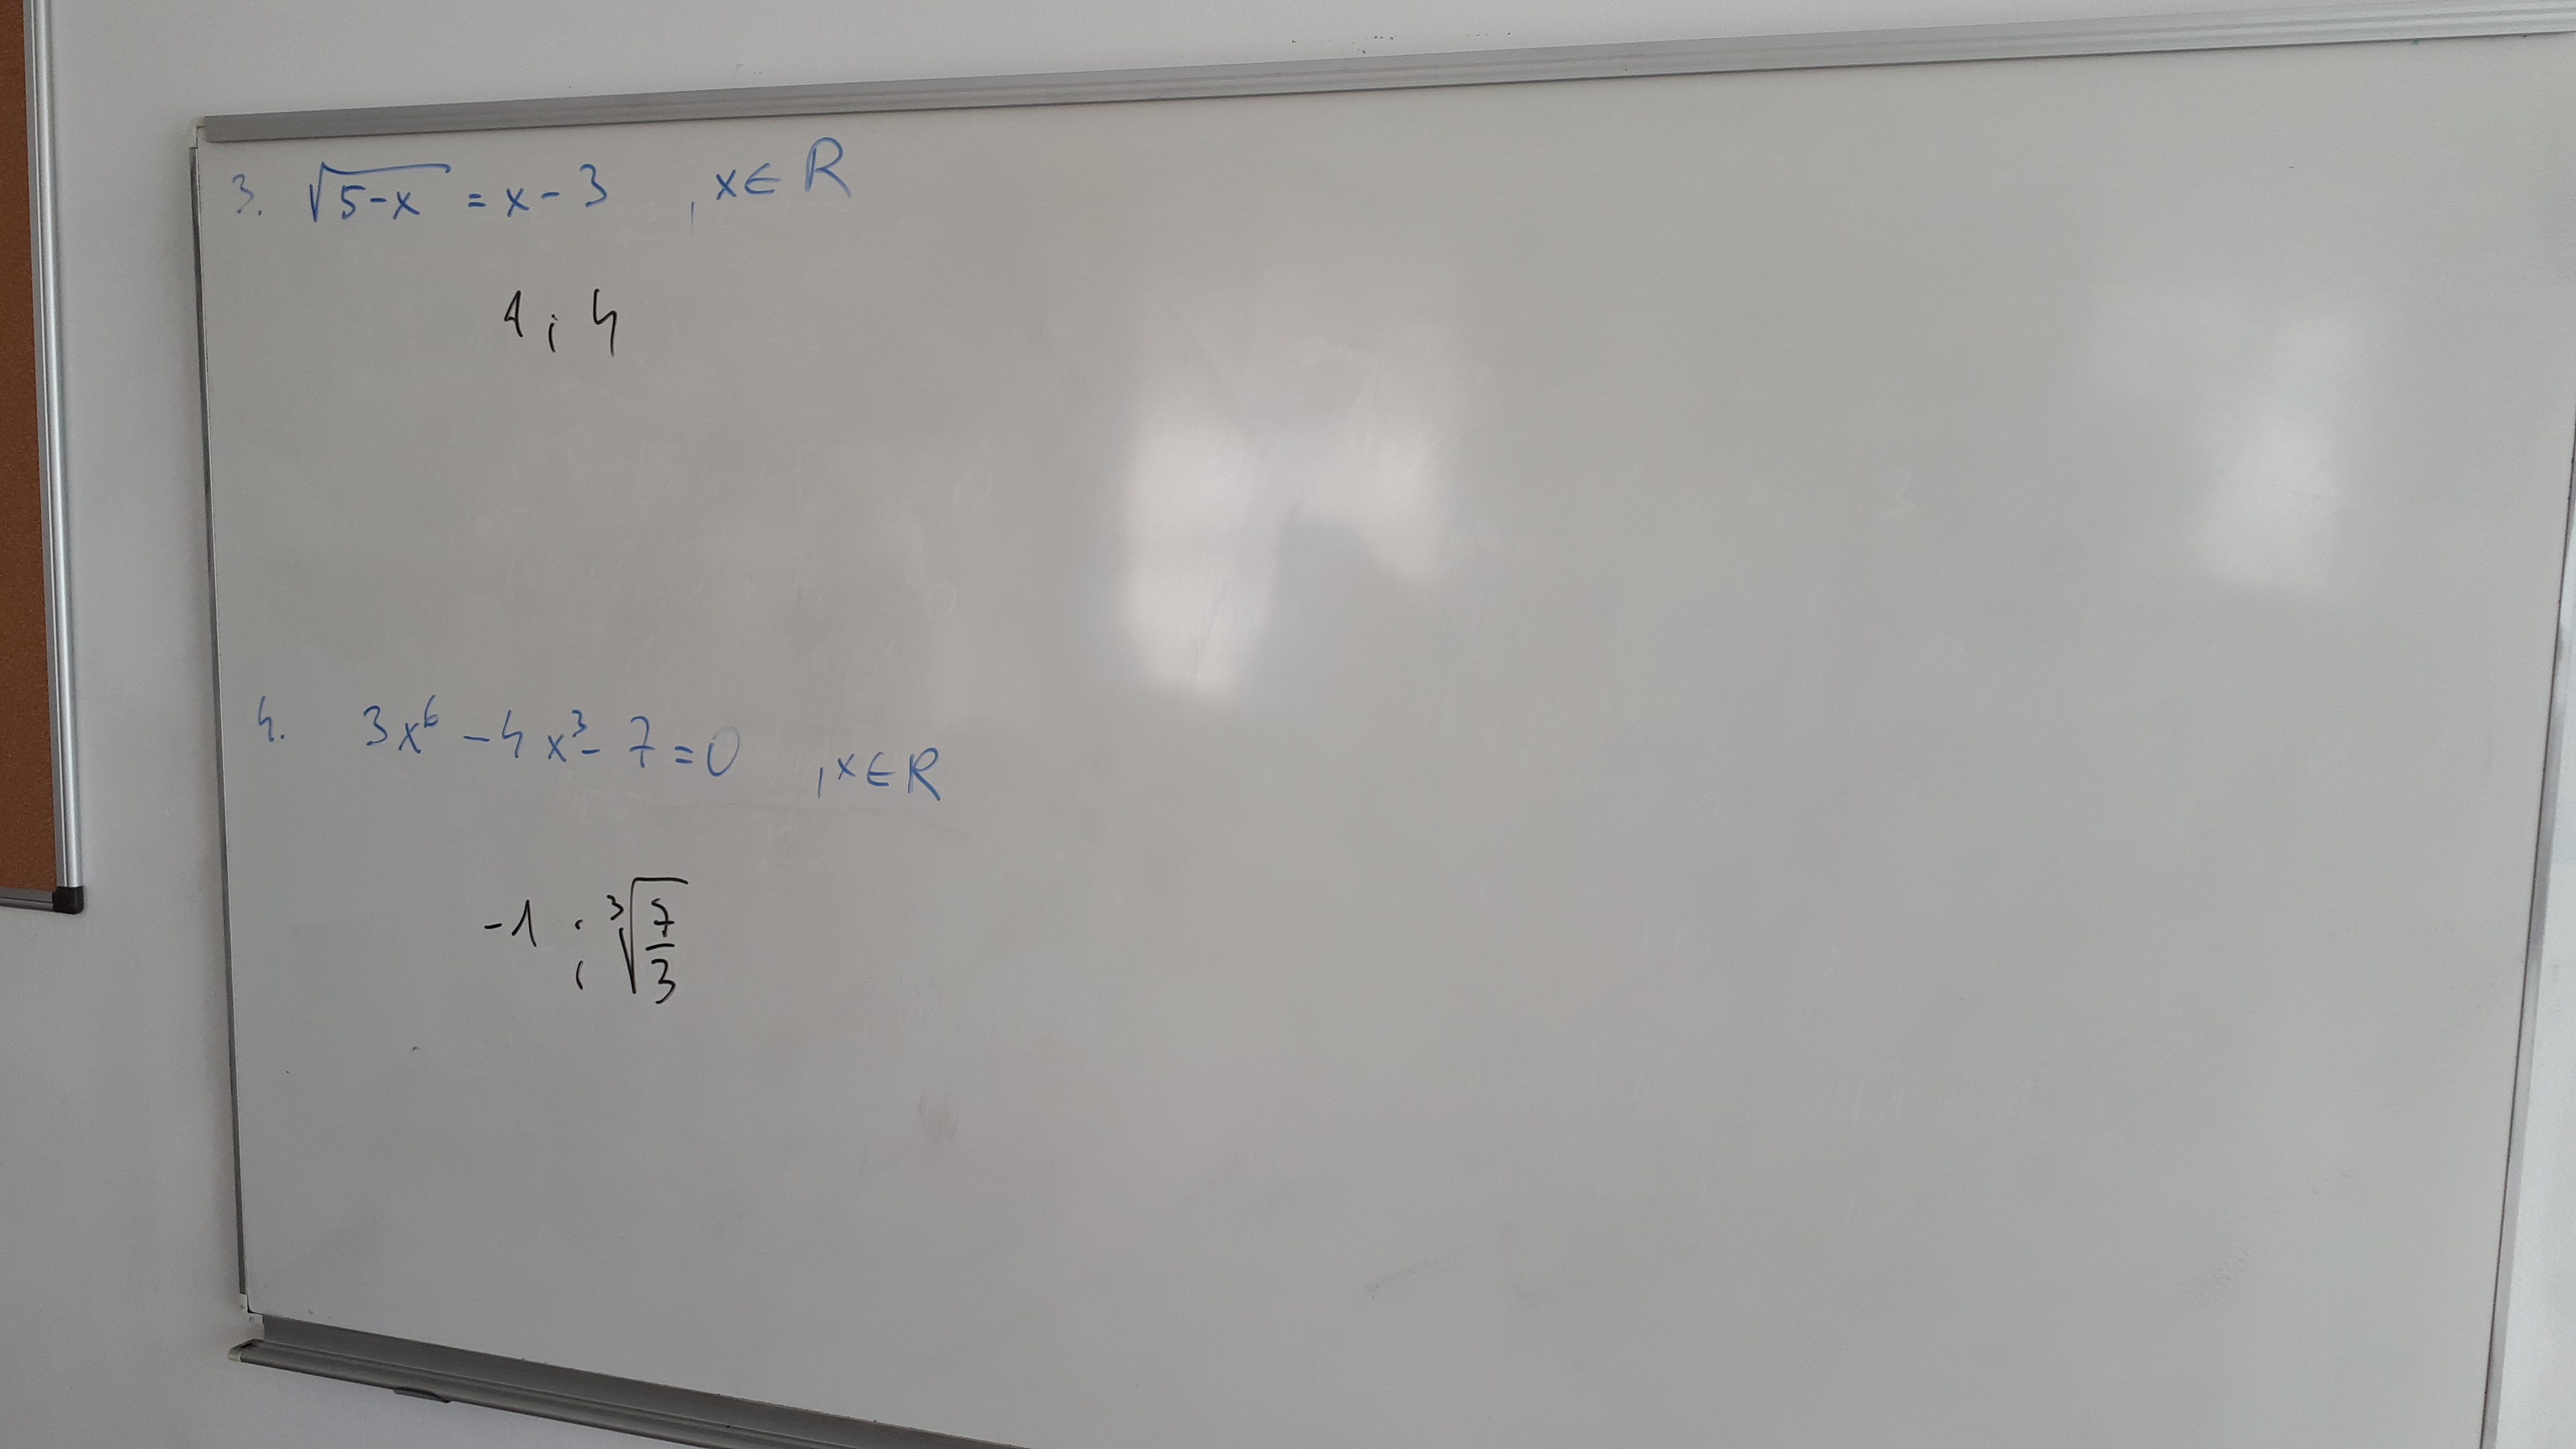 3. √(5-x) = x - 3 , x ∈ R
1 ; 4
4. 3x⁶ - 4x³ - 7 = 0 , x ∈ R
-1 ; ³√(7/3)